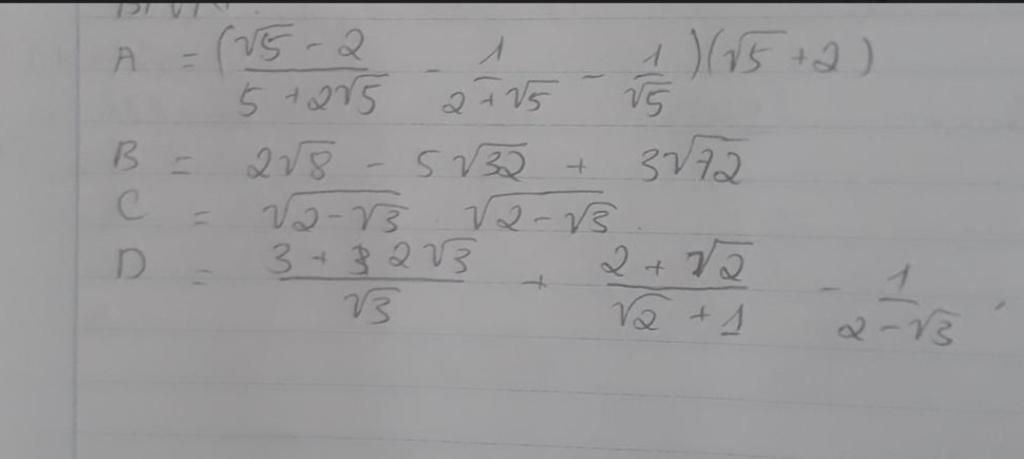 A = (\frac{√5 - 2}{5 + 2√5} - \frac{1}{2 + √5} - \frac{1}{√5})(√5 + 2)
B = 2√8 - 5√32 + 3√72
C = \sqrt{2 - √3} \sqrt{2 - √3}.
D = \frac{3 + 2√3}{√3} + \frac{2 + √2}{√2 + 1} - \frac{1}{2 - √3}.